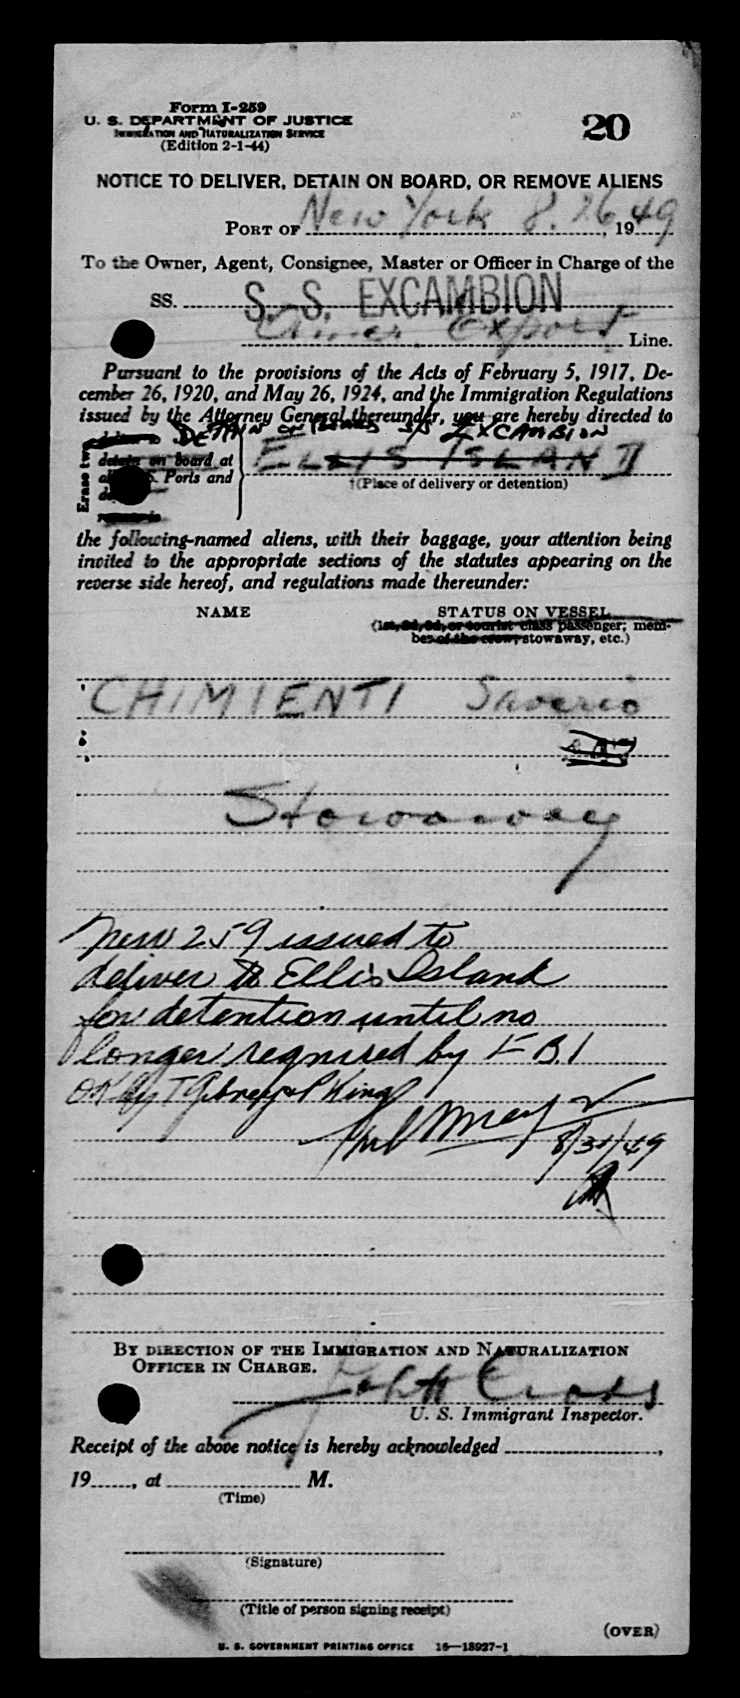 Form I-259
U. S. DEPARTMENT OF JUSTICE
IMMIGRATION AND NATURALIZATION SERVICE
(Edition 2-1-44)
20
NOTICE TO DELIVER, DETAIN ON BOARD, OR REMOVE ALIENS
PORT OF New York 8. 26, 1949
To the Owner, Agent, Consignee, Master or Officer in Charge of the
SS. S. S. EXCAMBION
Amer. Export Line.
Pursuant to the provisions of the Acts of February 5, 1917, De-
cember 26, 1920, and May 26, 1924, and the Immigration Regulations
issued by the Attorney General thereunder, you are hereby directed to
DETAIN ON BOARD SS EXCAMBION
Erase two
detain on board at
Ports and
ELLIS ISLAND
†(Place of delivery or detention)
the following-named aliens, with their baggage, your attention being
invited to the appropriate sections of the statutes appearing on the
reverse side hereof, and regulations made thereunder:
NAME STATUS ON VESSEL
(1st, 2d, 3d, or tourist class passenger; mem-
ber of the crew, stowaway, etc.)
CHIMIENTI Saverio
Stowaway
New 259 issued to
deliver to Ellis Island
for detention until no
longer required by F B I
OK by T & P King
8/31/49
BY DIRECTION OF THE IMMIGRATION AND NATURALIZATION
OFFICER IN CHARGE.
U. S. Immigrant Inspector.
Receipt of the above notice is hereby acknowledged ,
19 , at M.
(Time)
(Signature)
(Title of person signing receipt)
(OVER)
U. S. GOVERNMENT PRINTING OFFICE 16—18927-1